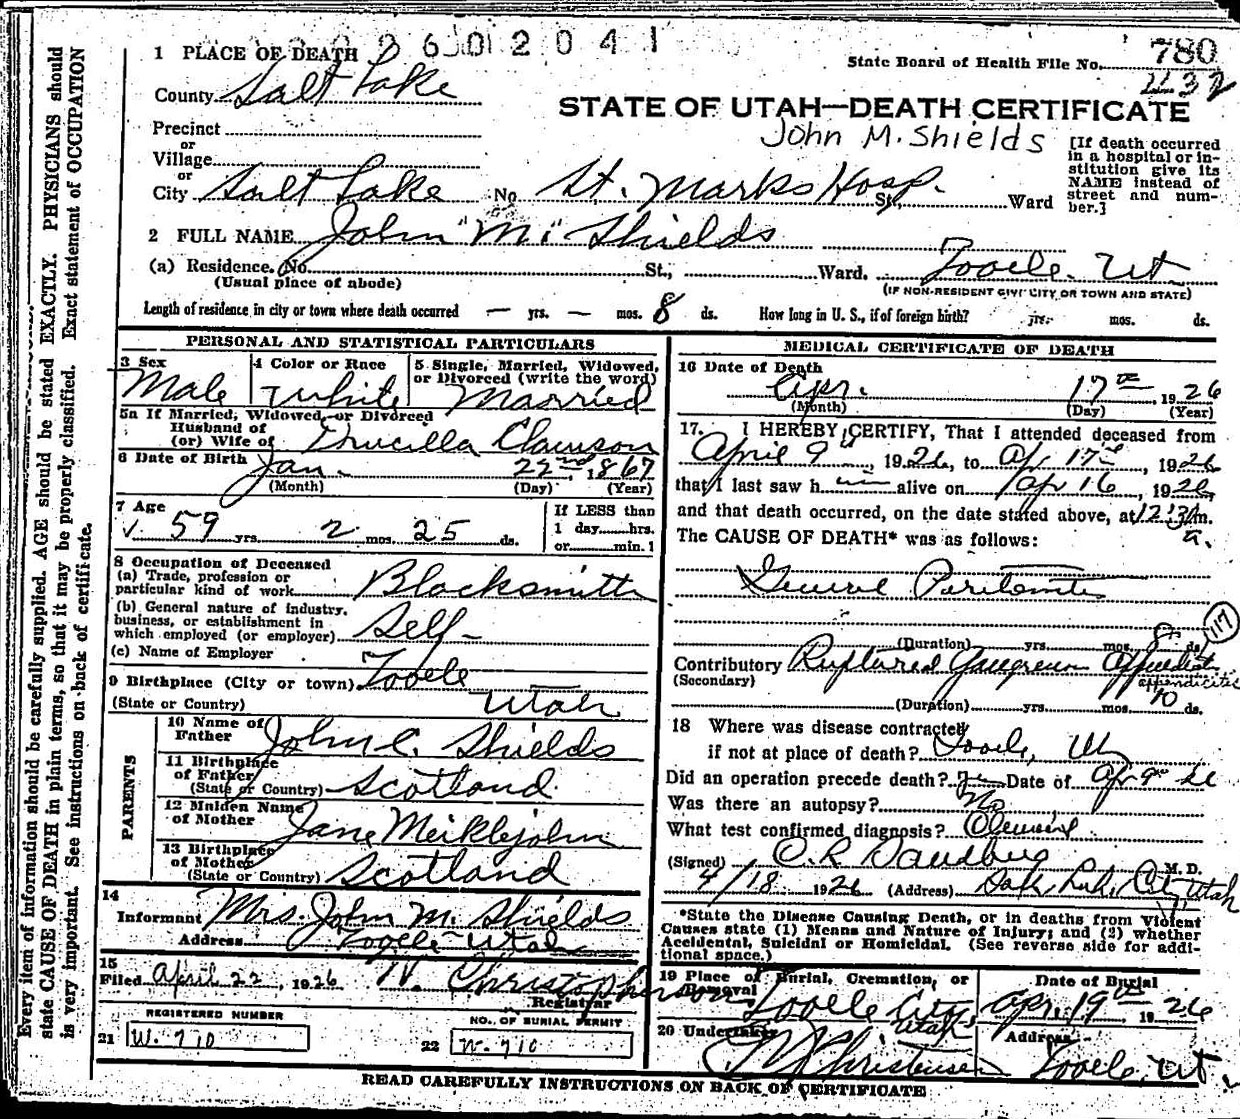 2 6 0 2 0 4 1
1 PLACE OF DEATH
State Board of Health File No. 780
432
County Salt Lake
STATE OF UTAH—DEATH CERTIFICATE
John M. Shields
Precinct
or
Village
or
City Salt Lake No. St. Marks Hosp. St., Ward
[If death occurred
in a hospital or in-
stitution give its
NAME instead of
street and num-
ber.]
2 FULL NAME John "M." Shields
(a) Residence. No. St., Ward. Tooele. Ut
(Usual place of abode)
(IF NON-RESIDENT GIVE CITY OR TOWN AND STATE)
Length of residence in city or town where death occurred — yrs. — mos. 8 ds. How long in U. S., if of foreign birth? yrs. mos. ds.
PERSONAL AND STATISTICAL PARTICULARS
3 Sex
Male
4 Color or Race
White
5 Single, Married, Widowed,
or Divorced (write the word)
Married
5a If Married, Widowed, or Divorced
Husband of
(or) Wife of Drucilla Clawson
6 Date of Birth Jan. 22nd, 1867
(Month) (Day) (Year)
7 Age
59 yrs. 2 mos. 25 ds.
If LESS than
1 day hrs.
or min.
8 Occupation of Deceased
(a) Trade, profession or
particular kind of work Blacksmith
(b) General nature of industry,
business, or establishment in
which employed (or employer) Self
(c) Name of Employer
9 Birthplace (City or town) Tooele
(State or Country) Utah
PARENTS
10 Name of
Father John C. Shields
11 Birthplace
of Father
(State or Country) Scotland
12 Maiden Name
of Mother Jane Meiklejohn
13 Birthplace
of Mother
(State or Country) Scotland
14
Informant Mrs. John M. Shields
Address Tooele Utah
15
Filed April 22, 1926 N. Christopherson
Registrar
REGISTERED NUMBER
21 W. 710
NO. OF BURIAL PERMIT
22 W. 710
MEDICAL CERTIFICATE OF DEATH
16 Date of Death
Apr. 17th 1926
(Month) (Day) (Year)
17. I HEREBY CERTIFY, That I attended deceased from
April 9th, 1926, to Ap 17th, 1926
that I last saw h alive on Ap 16, 1926,
and that death occurred, on the date stated above, at 12:31 m.
a.
The CAUSE OF DEATH* was as follows:
General Peritonitis
(Duration) yrs. mos. 8 ds.
117
Contributory Ruptured Gangrenous Appendicitis
(Secondary)
appendicitis
(Duration) yrs. mos. 10 ds.
18 Where was disease contracted
if not at place of death? Tooele, Ut
Did an operation precede death? Yes Date of Apr 9th 26
Was there an autopsy? No
What test confirmed diagnosis? Clinical
(Signed) O. R. Sandberg M. D.
4/18 1926 (Address) Salt Lake City Utah
*State the Disease Causing Death, or in deaths from Violent
Causes state (1) Means and Nature of Injury; and (2) whether
Accidental, Suicidal or Homicidal. (See reverse side for addi-
tional space.)
19 Place of Burial, Cremation, or
Removal Tooele City,
Utah
Date of Burial
Apr. 19th 1926
20 Undertaker
Christensen
Address
Tooele, Ut.
READ CAREFULLY INSTRUCTIONS ON BACK OF CERTIFICATE
Every item of information should be carefully supplied. AGE should be stated EXACTLY. PHYSICIANS should
state CAUSE OF DEATH in plain terms, so that it may be properly classified. Exact statement of OCCUPATION
is very important. See instructions on back of certificate.